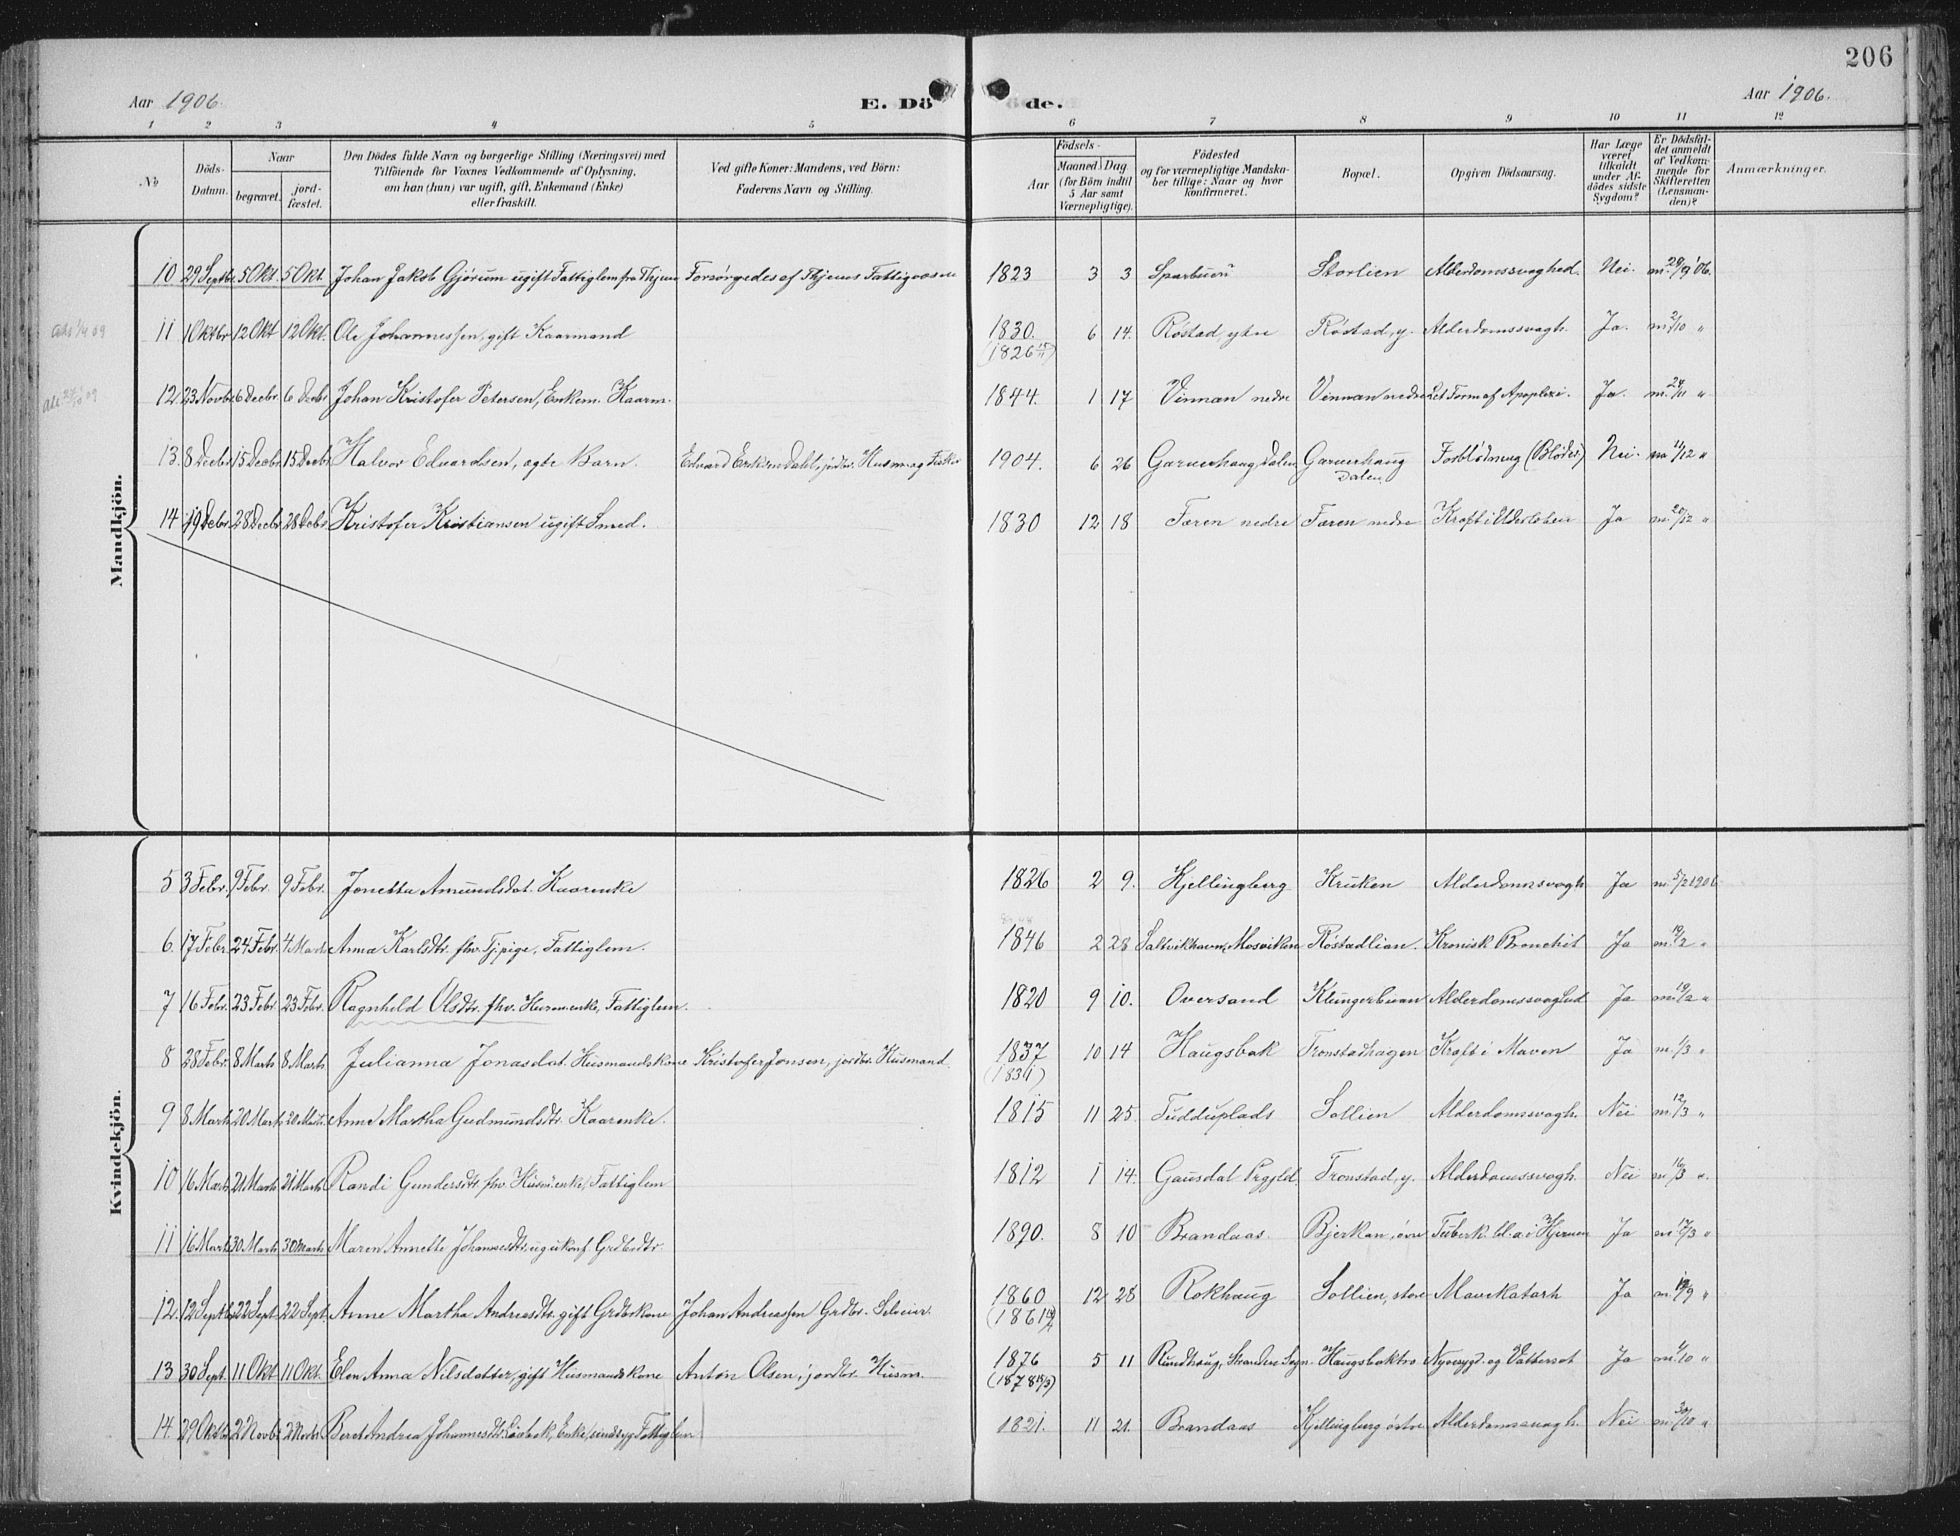 206
Aar 1906. E. Döde. Aar 1906.
1 2 3 4 5 6 7 8 9 10 11 12
No
Döds-Datum.
Naar
begravet.
jord-fæstet.
Den Dödes fulde Navn og borgerlige Stilling (Næringsvei) med
Tilföiende for Voxnes Vedkommende af Oplysning,
om han (hun) var ugift, gift, Enkemand (Enke)
eller fraskilt.
Ved gifte Koner: Mandens, ved Börn:
Faderens Navn og Stilling.
Födsels-
Aar
Maaned Dag
(for Börn indtil
5 Aar samt
Værnepligtige).
Födested
og for værnepligtige Mandska-
ber tillige: Naar og hvor
konfirmeret.
Bopæl.
Opgiven Dödsaarsag.
Har Læge
været
tilkaldt
under Af-
dödes sidste
Sygdom?
Er Dödsfal-
det anmeldt
af Vedkom-
mende for
Skifteretten
(Lensman-
den)?
Anmærkninger.
Mandkjön.
10 29 Septbr. 5 Okt. 5 Okt. Johan Jakob Gjörum ugift Fattiglem fra Thjem Forsörgedes af Thjems Fattigvæsen 1823 3 3 Sparbuen Storlien Alderdomssvaghed. Nei. m. 29/9 '06.
11 1 Oktbr 12 Okt 12 Okt. Ole Johannessen, gift Kaarmand 1830. (1826) 6 14. Röstad, ytre Röstad, y. Alderdomssvagh. Ja. m. 2/10 "
12. 23 Novbr. 6 Decbr. 6 Decbr Johan Kristofer Petersen, Enkem. Kaarm. 1844. 1 17 Vinnan nedre Vinnan nedre Let Form af Apoplexi. Ja. m. 24/11 "
13. 8 Decbr. 15 Decbr 15 Decbr Halvor Edvardsen, ægte Barn. Edvard Eriksen Dahl, jordbr. Husm. og Fisker 1904. 6 26 Garverhaug, Dalen Garverhaug Dalen Forblödning (Blöder) Nei. m 11/12 "
14 19 Decbr. 28 Decbr 28 Decbr Kristofer Kristiansen ugift Smed. 1830 12 18 Færen nedre Færen nedre Kræft i Underleben Ja m. 20/12 "
Kvindekjön.
5 3 Febr. 9 Febr. 9 Febr. Jonetta Amundsdat. Kaarenke 1826 2 9. Kjellingberg Kruken Alderdomssvagh Ja m. 5/2 1906
6. 17 Febr. 24 Febr. 4 Marts Anna Karlsdtr. fhv. Tj.pige, Fattiglem. 1846 2 28 Saltvikhavn, Mosviken Röstadlian. Kronisk Bronchit Ja m. 19/2 "
7 16 Febr. 23 Febr. 23 Febr. Ragnhild Olsdtr. fhv. Husm.enke, Fattiglem. 1820 9 10. Oversand Klungerbuan Alderdomssvaghed Ja m. 19/2 "
8 28 Febr. 8 Marts 8 Marts Julianna Jonasdat. Husmandskone Kristofer Jonsen, jordbr. Husmand. 1837 (1834) 10 14 Haugsbak Tronstadhagen Kræft i Maven Ja m. 1/3 "
9 8 Marts 20 Marts 20 Marts Anne Martha Gudmundsdtr. Kaarenke. 1815 11 25. Tudduplads Sollien Alderdomssvagh. Nei m. 12/3 "
10 16 Marts 21 Marts 21 Marts Randi Gundersdtr. fhv. Husm.enke, Fattiglem 1812 1 14. Gausdal Prgjld. Tronstad, y. Alderdomssvagh. Nei m. 16/3 "
11 16 Marts 30 Marts 30 Marts Maren Annette Johannesdtr. ug. ukonf. Grdbrdtr. 1890. 8 10 Brandaas Bjerkan, övre Tuberk. bl. a. i Hjernen Ja m 17/3 "
12. 12 Septbr 22 Sept. 22 Sept. Anne Martha Andreasdtr. gift Grdbrkone Johan Andreassen Grdbr. Seleier. 1860 (1861) 12 28 Rokhaug Sollien, store Mavekatarh Ja m. /9 "
13 30 Sept. 11 Okt 11 Okt. Elen Anna Nilsdatter, gift Husmandskone Anton Olsen, jordbr. Husm. 1876 (1878) 5 11 Rundhaug, Strandens Sogn. Haugsbaktrö Nyresygd. og Vattersot Ja m. 1/10 "
14. 29 Oktbr 2 Novbr. 2 Novbr. Beret Andrea Johannesdtr. Enke, sindssyg Fattiglem 1821. 11 21. Brandaas Kjellingberg östre Alderdomssvagh. Nei m. 30/10 "